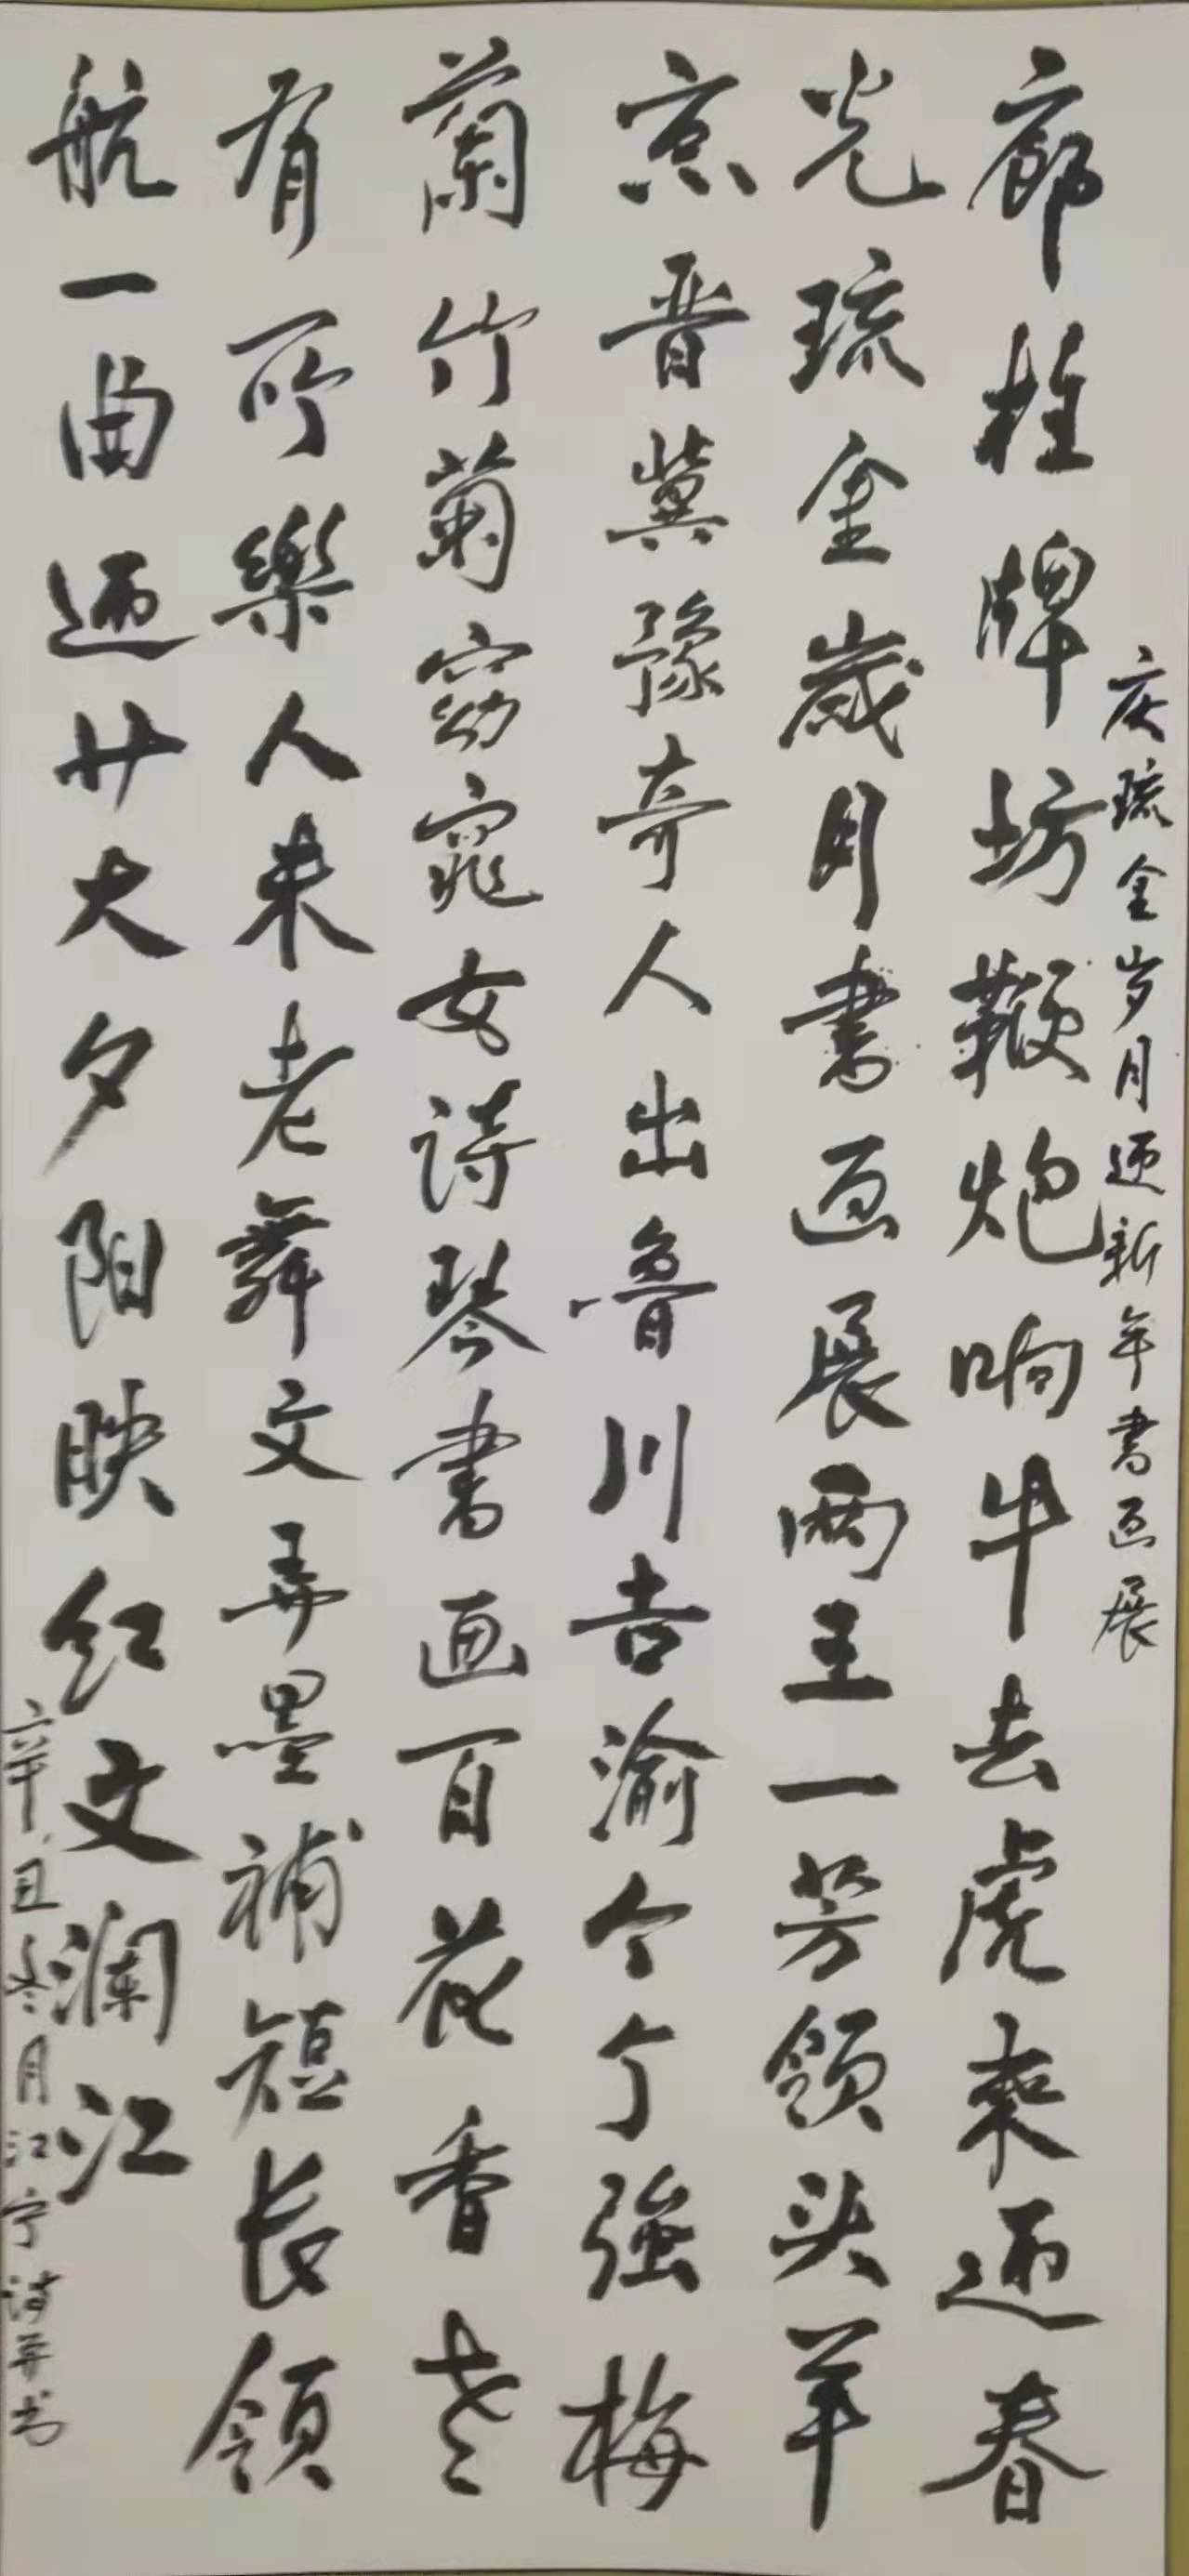 庆琉金岁月迎新年书画展
廊柱牌坊鞭炮响牛去虎来迎春
光琉金歲月書画展两王一芳领头羊
京晋冀豫奇人出鲁川吉渝个个強梅
蘭竹菊窈窕女詩琴書画百花香老
有所樂人未老舞文弄墨補短长領
航一曲迎廿大夕阳映红文澜江
辛丑冬月江宁诗并书